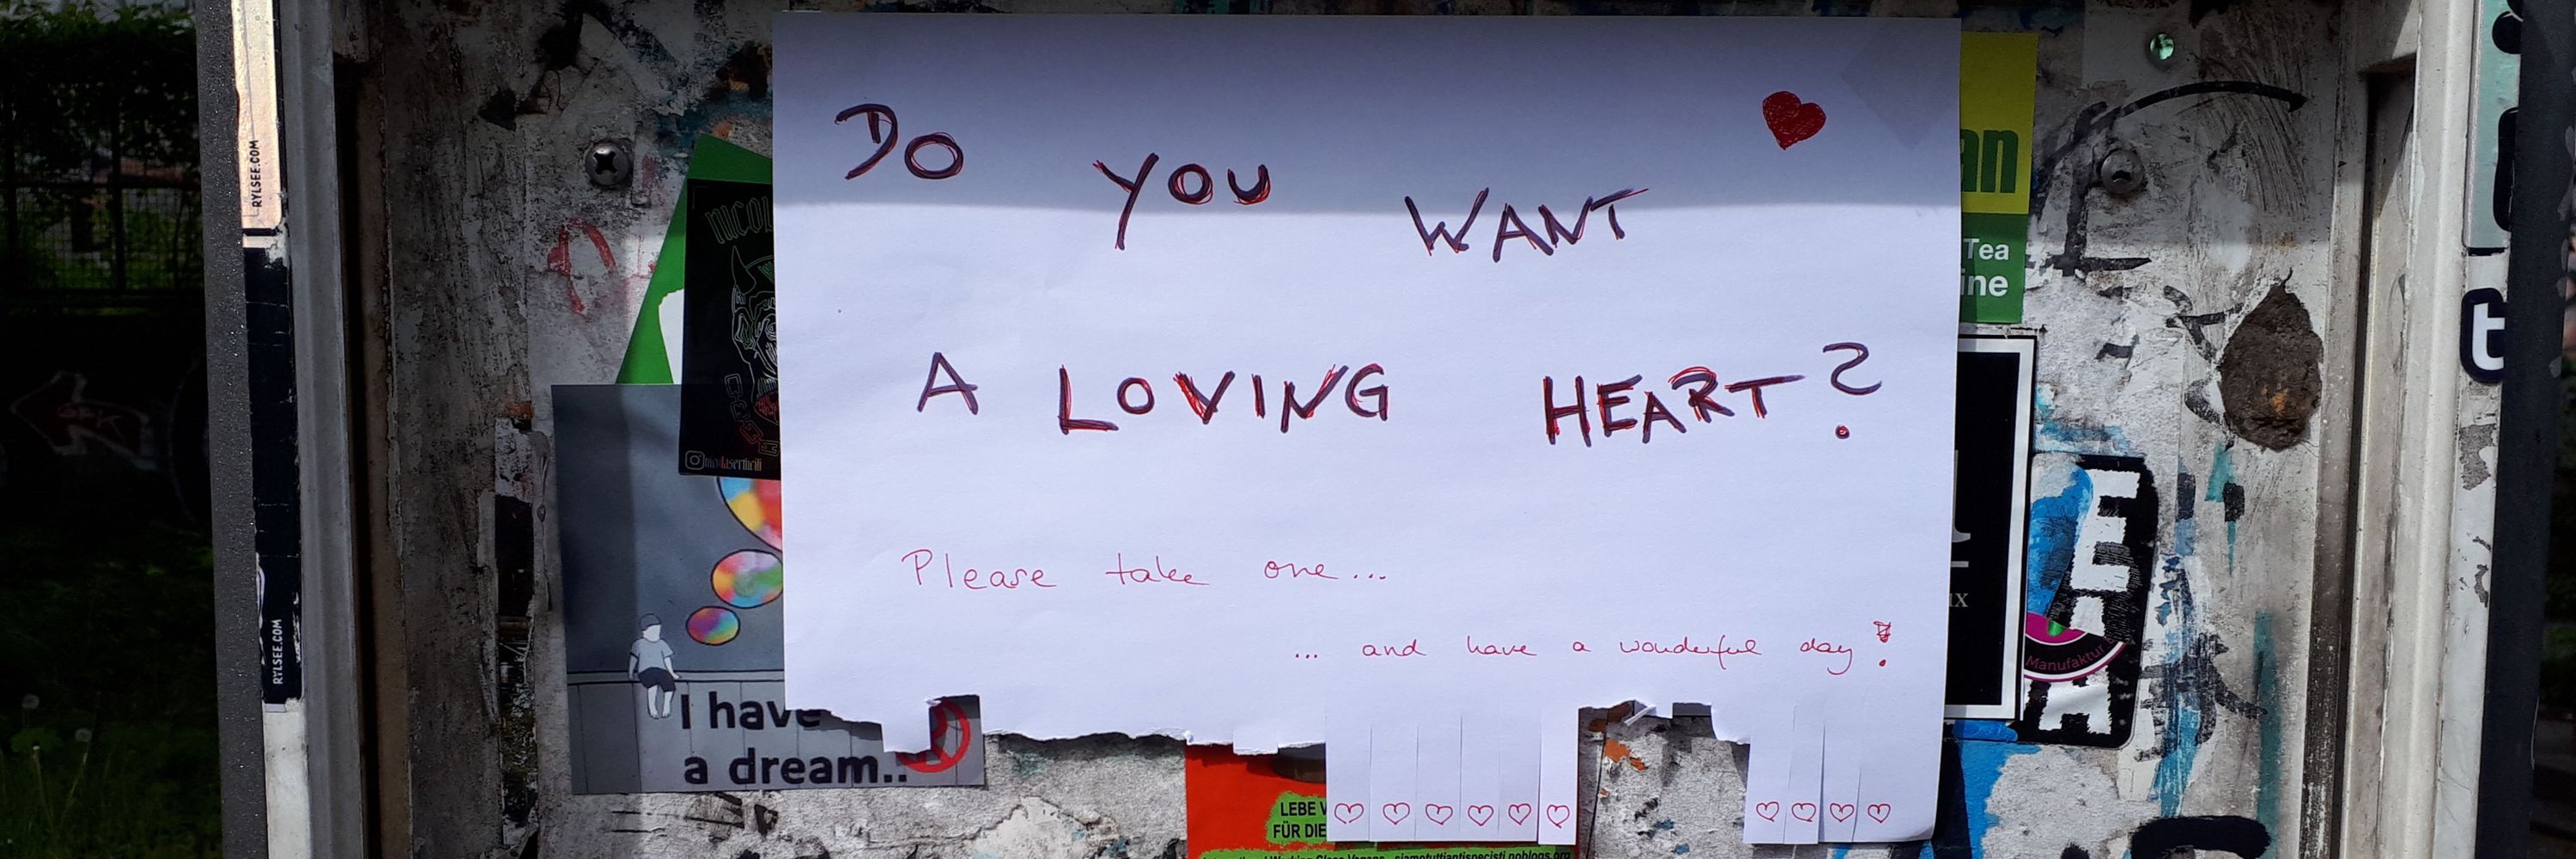 DO YOU WANT
A LOVING HEART?
Please take one...
... and have a wonderful day!
I have
a dream..
RYLSEE.COM
RYLSEE.COM
Tea
Manufaktur
LEBE
FÜR DIE